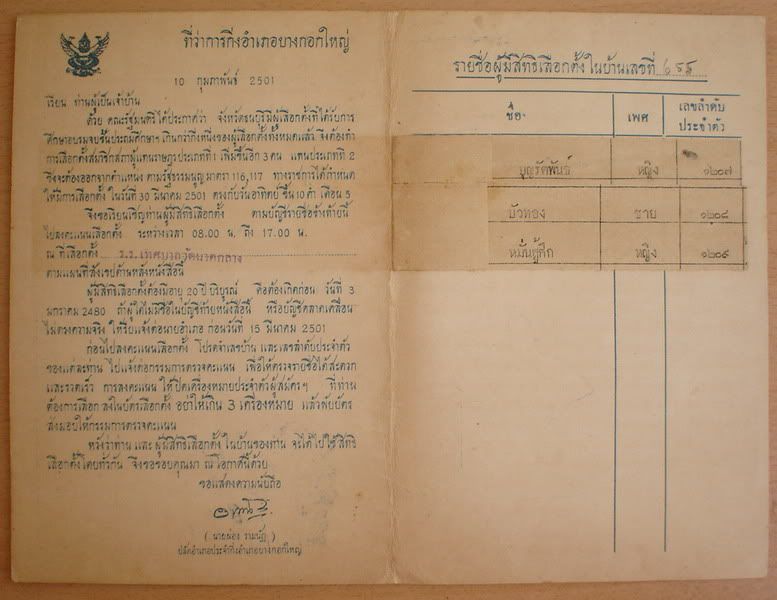 ที่ว่าการกิ่งอำเภอบางกอกใหญ่
10 กุมภาพันธ์ 2501
เรียน ท่านผู้เป็นเจ้าบ้าน
ด้วย คณะรัฐมนตรีได้ประกาศว่า จังหวัดธนบุรีมีผู้เลือกตั้งที่ได้รับการ
ศึกษาอบรมจบชั้นประถมศึกษาฯ เกินกว่ากึ่งหนึ่งของผู้เลือกตั้งทั้งหมดแล้ว จึงต้องทำ
การเลือกตั้งสมาชิกสภาผู้แทนราษฎรประเภทที่ 1 เพิ่มขึ้นอีก 3 คน แทนประเภทที่ 2
ซึ่งจะต้องออกจากตำแหน่ง ตามรัฐธรรมนูญ มาตรา 116,117 ทางราชการได้กำหนด
ให้มีการเลือกตั้ง ในวันที่ 30 มีนาคม 2501 ตรงกับวันอาทิตย์ ขึ้น 10 ค่ำ เดือน 5
จึงขอเรียนเชิญท่านผู้มีสิทธิเลือกตั้ง ตามบัญชีรายชื่อข้างท้ายนี้
ไปลงคะแนนเลือกตั้ง ระหว่างเวลา 08.00 น. ถึง 17.00 น.
ณ ที่เลือกตั้ง ร.ร.เทศบาลวัดนาคกลาง
ตามแผนที่สังเขปด้านหลังหนังสือนี้
ผู้มีสิทธิเลือกตั้งต้องมีอายุ 20 ปี บริบูรณ์ คือต้องเกิดก่อน วันที่ 3
มกราคม 2480 ถ้าผู้ใดไม่มีชื่อในบัญชีท้ายหนังสือนี้ หรือบัญชีคลาดเคลื่อน
ไม่ตรงความจริง ให้รีบแจ้งต่อนายอำเภอ ก่อนวันที่ 15 มีนาคม 2501
ก่อนไปลงคะแนนเลือกตั้ง โปรดจำเลขบ้าน และเลขลำดับประจำตัว
ของแต่ละท่าน ไปแจ้งต่อกรรมการตรวจคะแนน เพื่อให้ตรวจรายชื่อได้สะดวก
และรวดเร็ว การลงคะแนน ให้ปิดเครื่องหมายประจำตัวผู้สมัครฯ ที่ท่าน
ต้องการเลือก ลงในบัตรเลือกตั้ง อย่าให้เกิน 3 เครื่องหมาย แล้วพับบัตร
ส่งมอบให้กรรมการตรวจคะแนน
หวังว่าท่าน และ ผู้มีสิทธิเลือกตั้ง ในบ้านของท่าน จะได้ไปใช้สิทธิ
เลือกตั้งโดยทั่วกัน จึงขอขอบคุณมา ณ โอกาสนี้ด้วย
ขอแสดงความนับถือ
ปลัดอำเภอประจำกิ่งอำเภอบางกอกใหญ่
รายชื่อผู้มีสิทธิเลือกตั้ง ในบ้านเลขที่
ชื่อ เพศ เลขลำดับประจำตัว
บุญรัตพันธ์ หญิง ๑๒๐๗
บัวทอง ชาย ๑๒๐๘
หมั่นสู้ศึก หญิง ๑๒๐๙